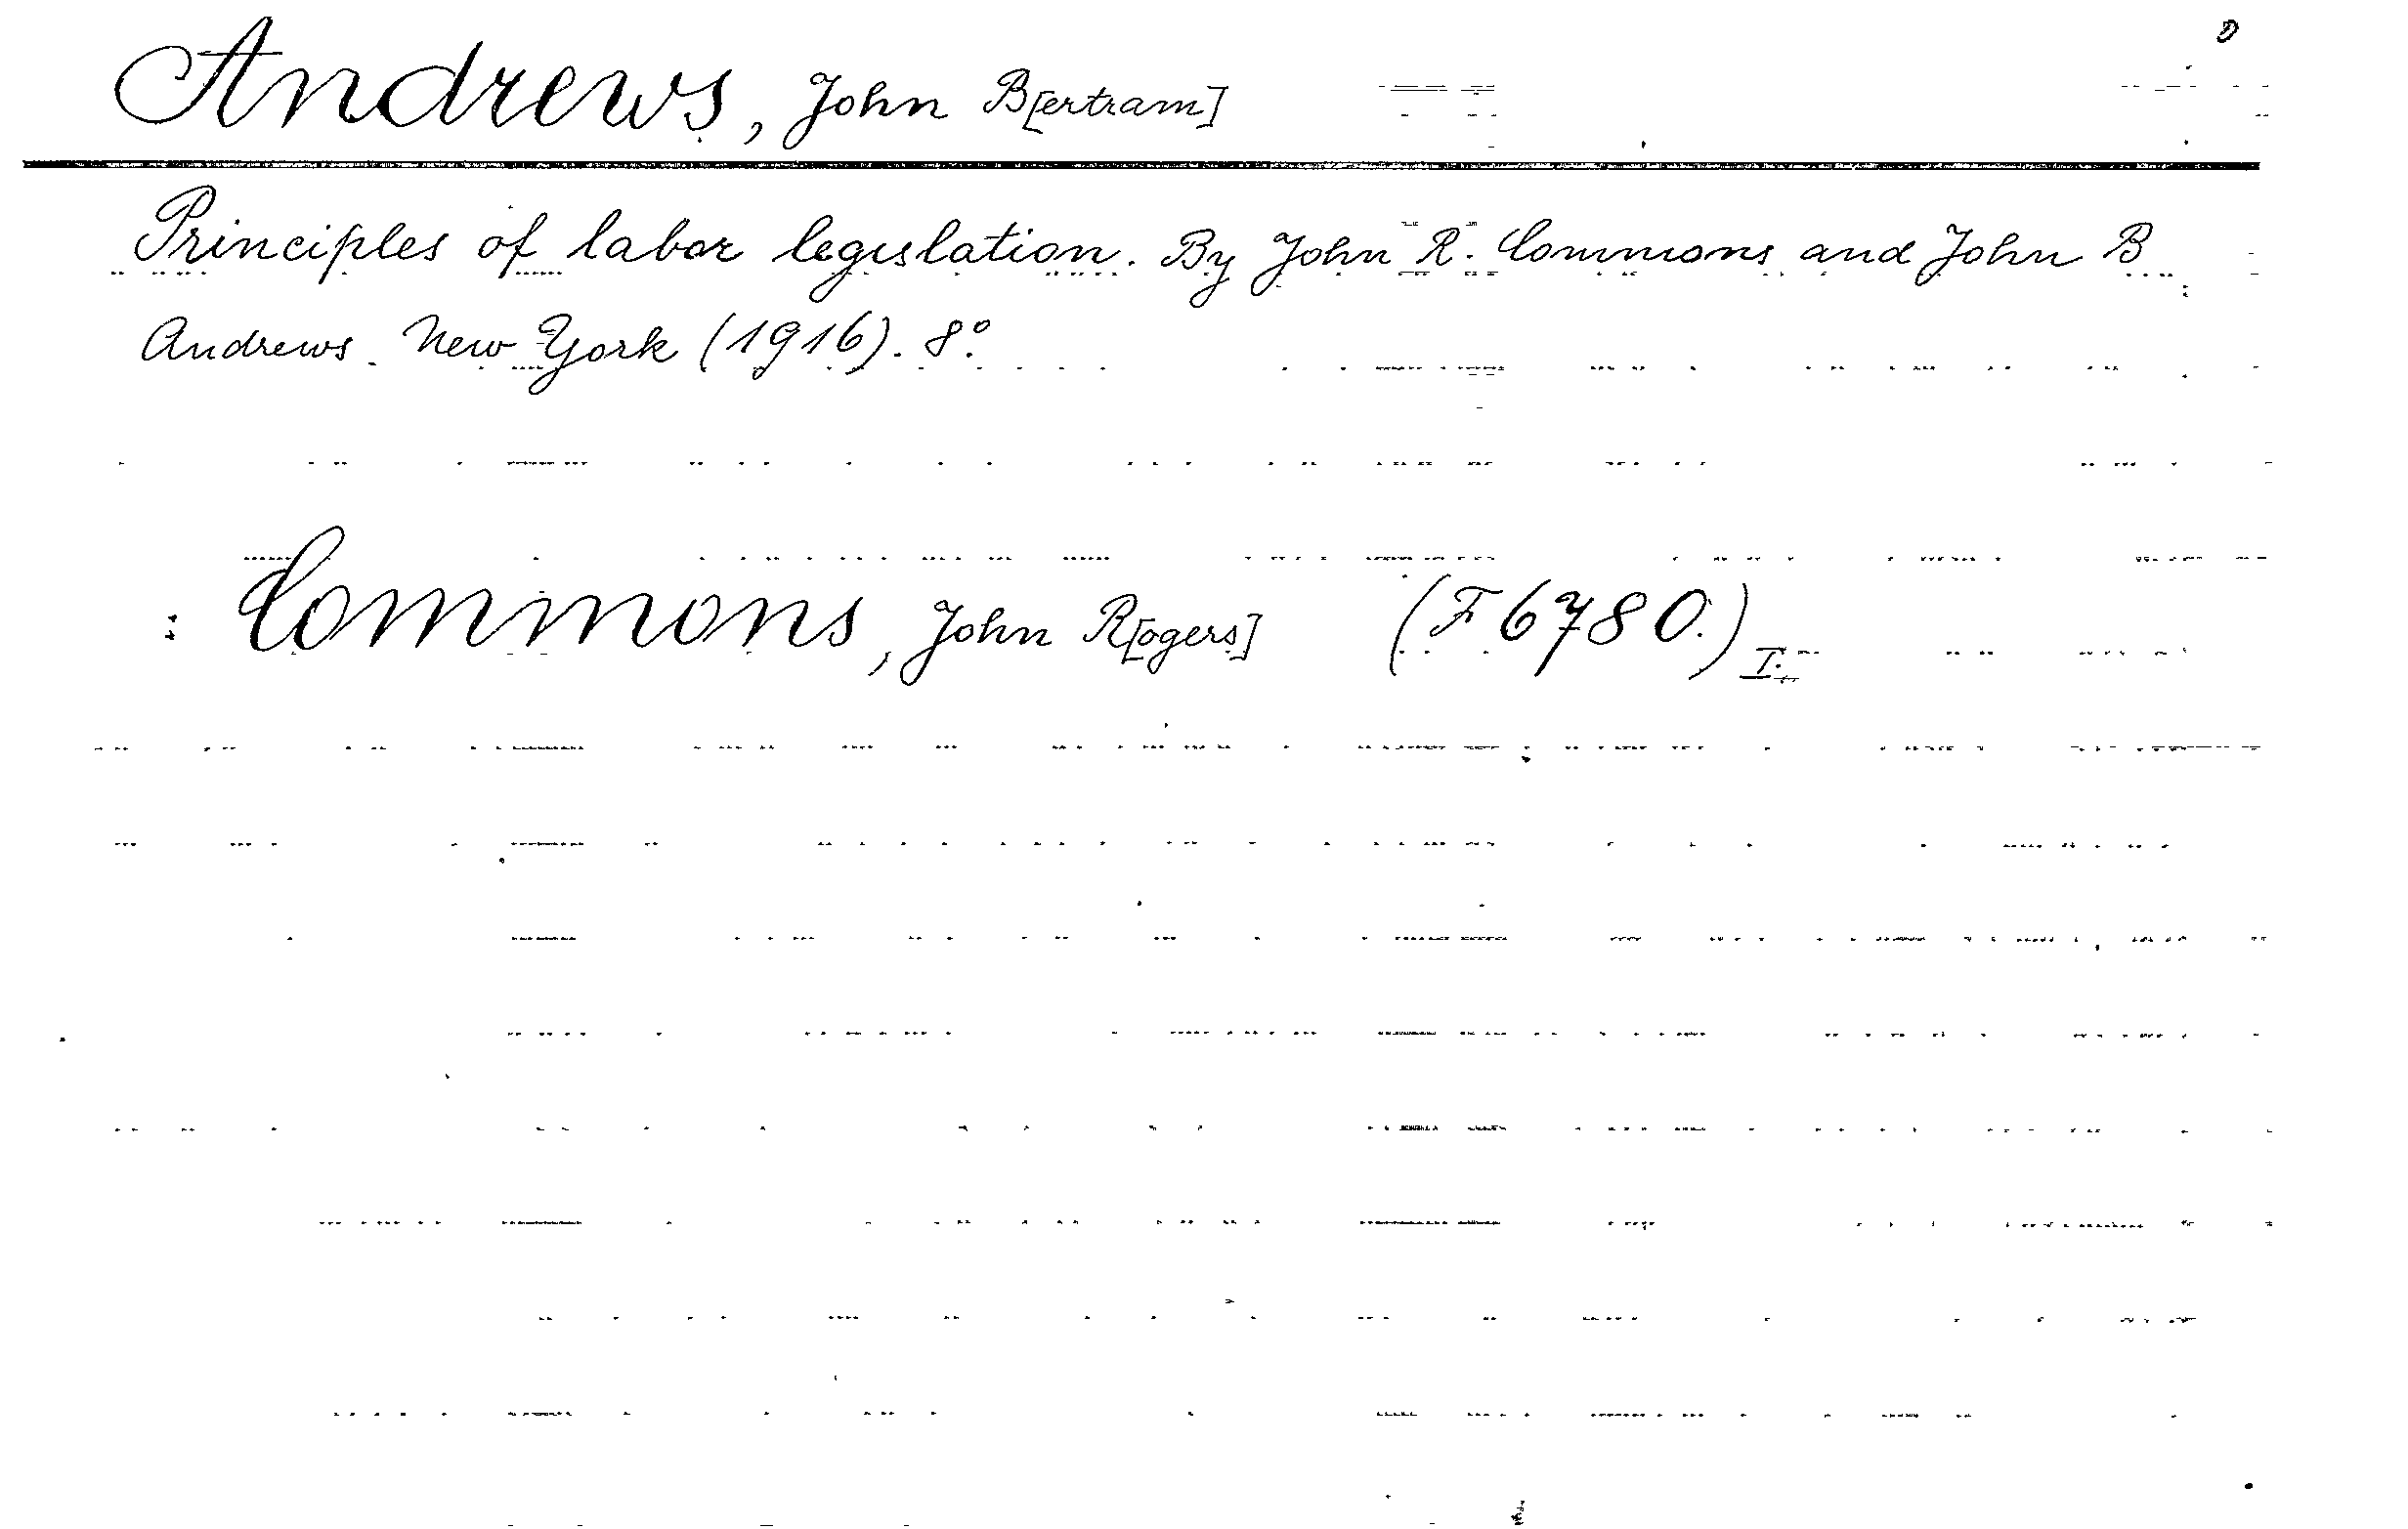 Andrews, John B[ertram]
Principles of labor legislation. By John R. Commons and John B
Andrews. New York (1916). 8°.
: Commons, John R[ogers] (F 6780.) I.